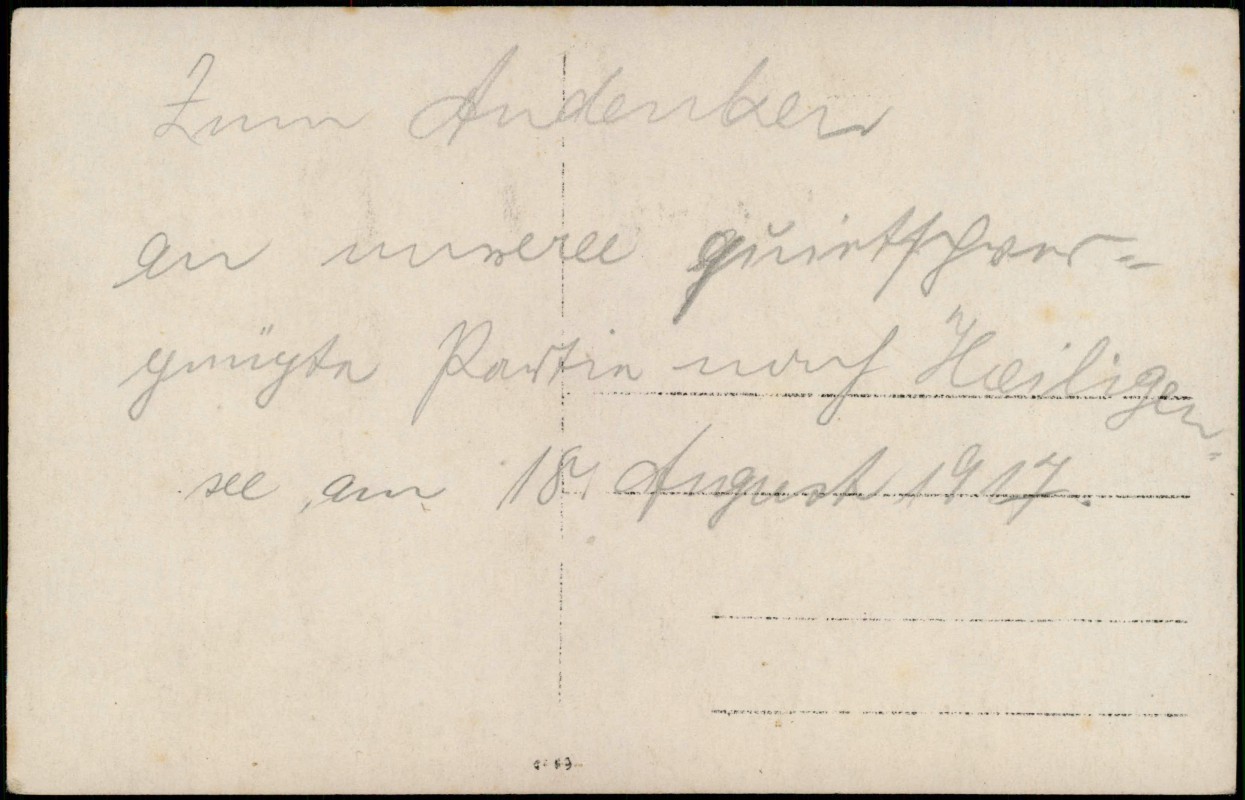 Zum Andenken
an unsere quietschver-
gnügte Partie nach Heiligen-
see, am 18. August 1917.